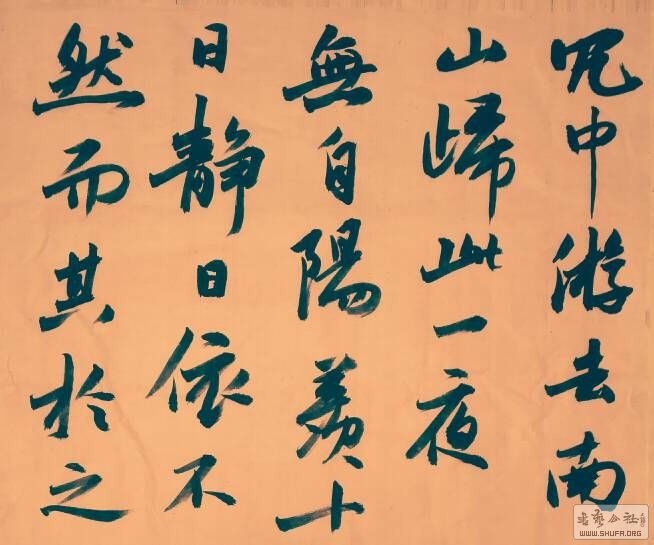 咒中游去南
山歸此一夜
無自陽羨十
日静日依不
然而其於之
书艺公社
WWW.SHUFA.ORG